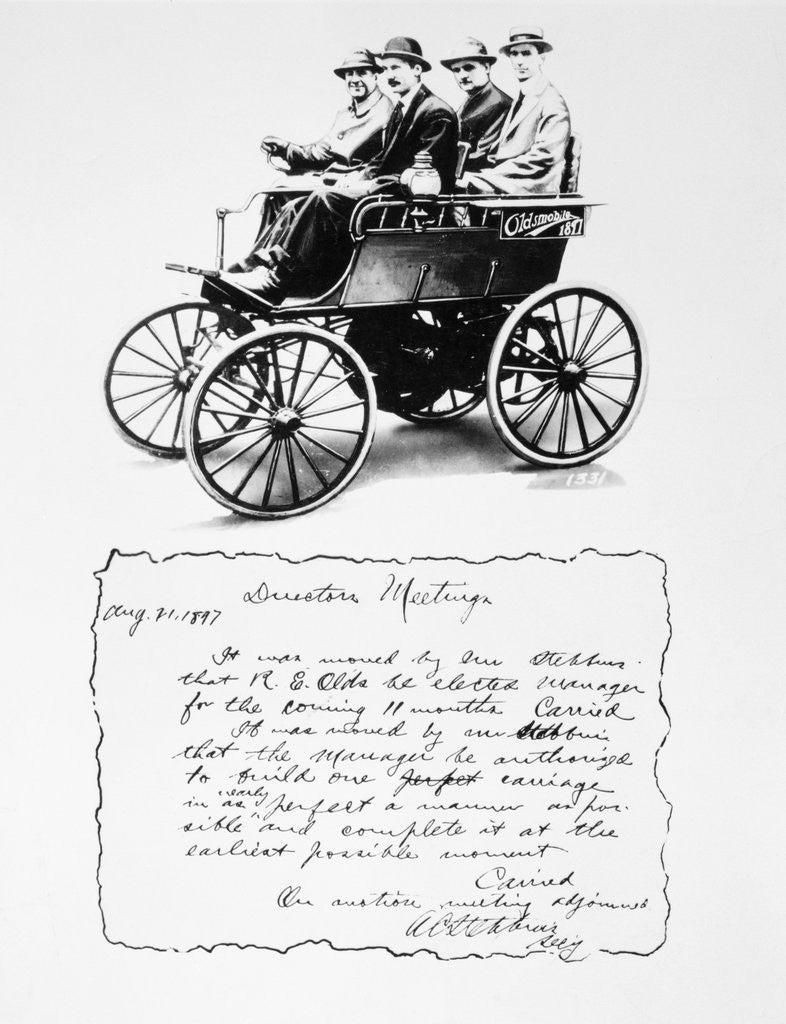 Oldsmobile
1897
1331
Directors Meetings
Aug. 21, 1897
It was moved by Mr Stebbins
that R. E. Olds be elected Manager
for the coming 11 months Carried
It was moved by mr Stebbins
that the Manager be authorized
to build one perfect carriage
in as nearly perfect a manner as pos-
sible and complete it at the
earliest possible moment
Carried
On motion meeting adjourned
A C Stebbins
Sec'y